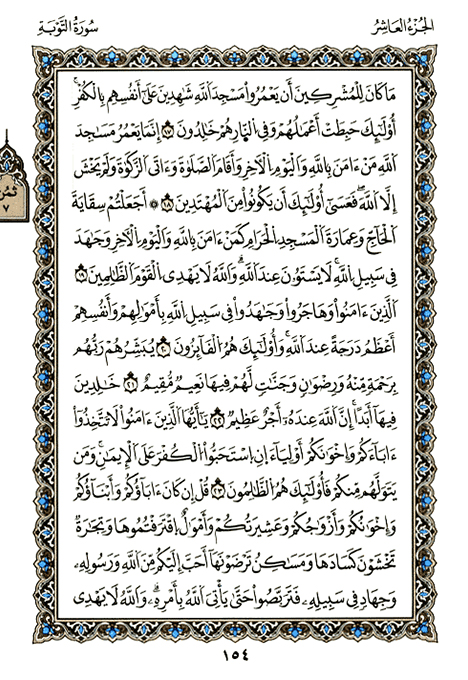 الجزء العاشر
سورة التوبة
مَا كَانَ لِلْمُشْرِكِينَ أَنْ يَعْمُرُوا۟ مَسَٰجِدَ اللَّهِ شَٰهِدِينَ عَلَىٰٓ أَنفُسِهِم بِالْكُفْرِۚ
أُو۟لَٰٓئِكَ حَبِطَتْ أَعْمَٰلُهُمْ وَفِي النَّارِ هُمْ خَٰلِدُونَ ١٧ إِنَّمَا يَعْمُرُ مَسَٰجِدَ
اللَّهِ مَنْ ءَامَنَ بِاللَّهِ وَالْيَوْمِ الْأَخِرِ وَأَقَامَ الصَّلَوٰةَ وَءَاتَى الزَّكَوٰةَ وَلَمْ يَخْشَ
إِلَّا اللَّهَۖ فَعَسَىٰٓ أُو۟لَٰٓئِكَ أَن يَكُونُوا۟ مِنَ الْمُهْتَدِينَ ١٨ ۞ أَجَعَلْتُمْ سِقَايَةَ
الْحَآجِّ وَعِمَارَةَ الْمَسْجِدِ الْحَرَامِ كَمَنْ ءَامَنَ بِاللَّهِ وَالْيَوْمِ الْأَخِرِ وَجَٰهَدَ
فِي سَبِيلِ اللَّهِۚ لَا يَسْتَوُۥنَ عِندَ اللَّهِۗ وَاللَّهُ لَا يَهْدِي الْقَوْمَ الظَّٰلِمِينَ ١٩
الَّذِينَ ءَامَنُوا۟ وَهَاجَرُوا۟ وَجَٰهَدُوا۟ فِي سَبِيلِ اللَّهِ بِأَمْوَٰلِهِمْ وَأَنفُسِهِمْ
أَعْظَمُ دَرَجَةً عِندَ اللَّهِۚ وَأُو۟لَٰٓئِكَ هُمُ الْفَآئِزُونَ ٢٠ يُبَشِّرُهُمْ رَبُّهُم
بِرَحْمَةٍ مِّنْهُ وَرِضْوَٰنٍ وَجَنَّٰتٍ لَّهُمْ فِيهَا نَعِيمٌ مُّقِيمٌ ٢١ خَٰلِدِينَ
فِيهَآ أَبَدًاۚ إِنَّ اللَّهَ عِندَهُۥٓ أَجْرٌ عَظِيمٌ ٢٢ يَٰٓأَيُّهَا الَّذِينَ ءَامَنُوا۟ لَا تَتَّخِذُوٓا۟
ءَابَآءَكُمْ وَإِخْوَٰنَكُمْ أَوْلِيَآءَ إِنِ اسْتَحَبُّوا۟ الْكُفْرَ عَلَى الْإِيمَٰنِۚ وَمَن
يَتَوَلَّهُم مِّنكُمْ فَأُو۟لَٰٓئِكَ هُمُ الظَّٰلِمُونَ ٢٣ قُلْ إِن كَانَ ءَابَآؤُكُمْ وَأَبْنَآؤُكُمْ
وَإِخْوَٰنُكُمْ وَأَزْوَٰجُكُمْ وَعَشِيرَتُكُمْ وَأَمْوَٰلٌ اقْتَرَفْتُمُوهَا وَتِجَٰرَةٌ
تَخْشَوْنَ كَسَادَهَا وَمَسَٰكِنُ تَرْضَوْنَهَآ أَحَبَّ إِلَيْكُم مِّنَ اللَّهِ وَرَسُولِهِۦ
وَجِهَادٍ فِي سَبِيلِهِۦ فَتَرَبَّصُوا۟ حَتَّىٰ يَأْتِيَ اللَّهُ بِأَمْرِهِۦۗ وَاللَّهُ لَا يَهْدِي
١٥٤